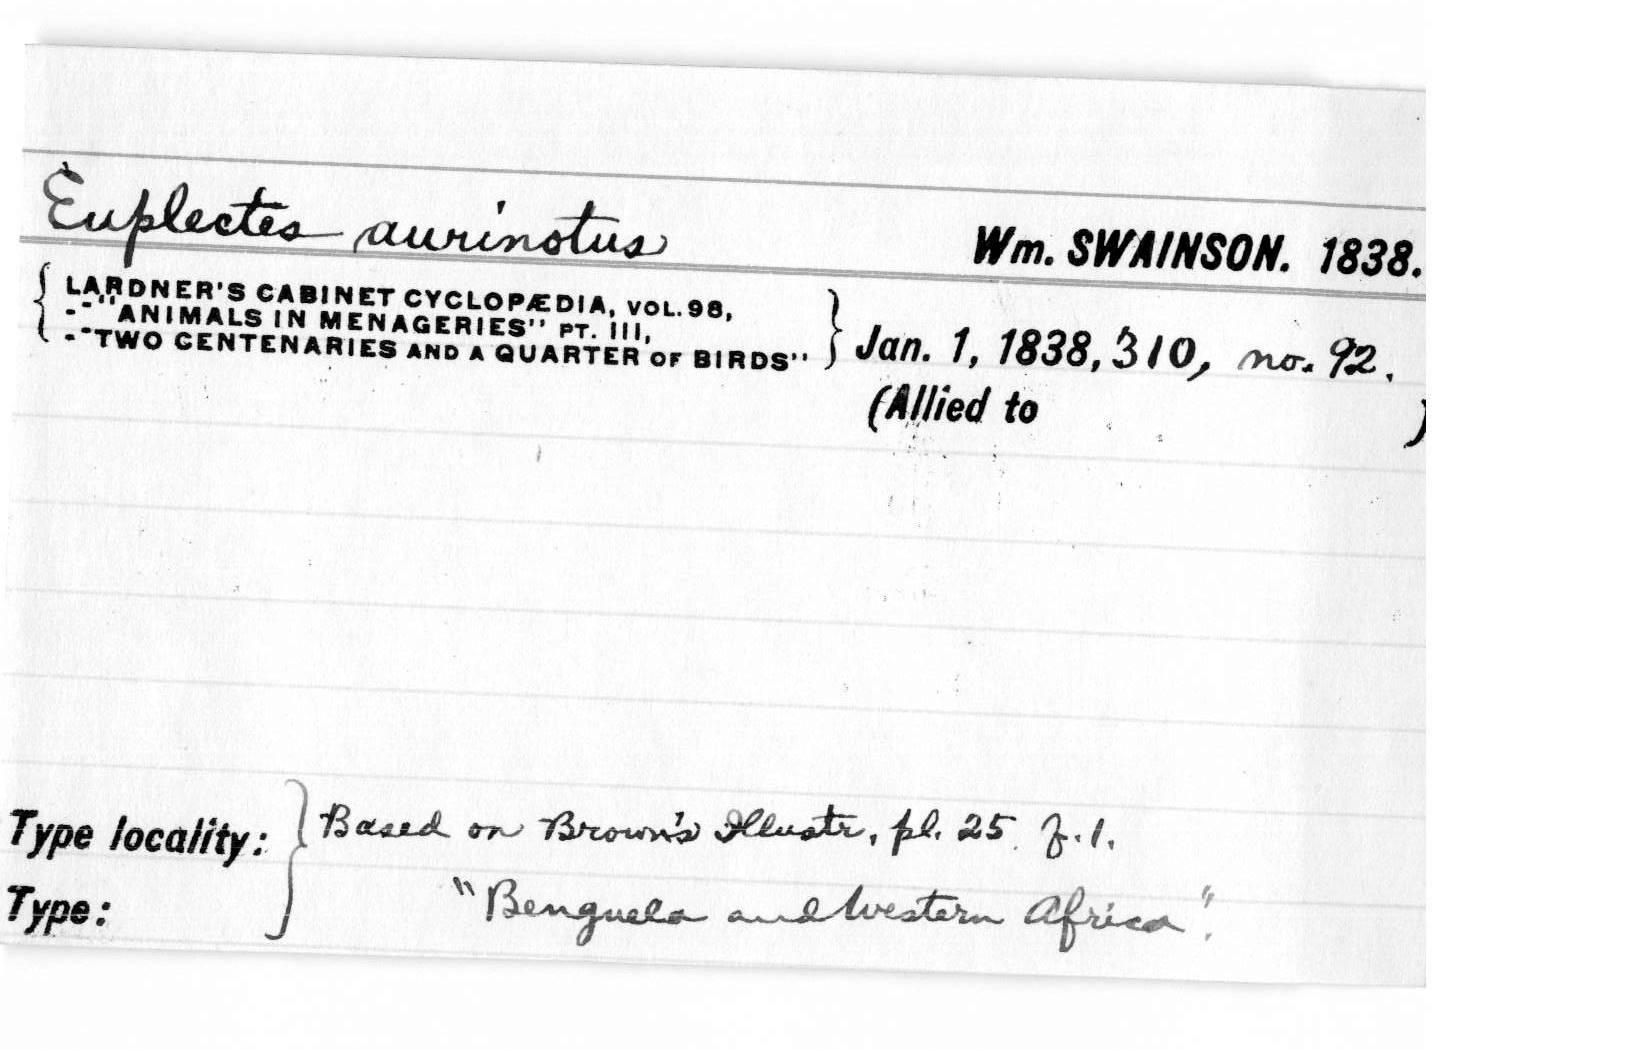 Euplectes aurinotus Wm. SWAINSON. 1838.
LARDNER'S CABINET CYCLOPÆDIA, VOL. 98,
-"ANIMALS IN MENAGERIES" PT. III,
-"TWO CENTENARIES AND A QUARTER OF BIRDS" Jan. 1, 1838, 310, no. 92.
(Allied to )
Type locality: Based on Brown's Illustr, pl. 25. f. 1.
Type: "Benguela and Western Africa".